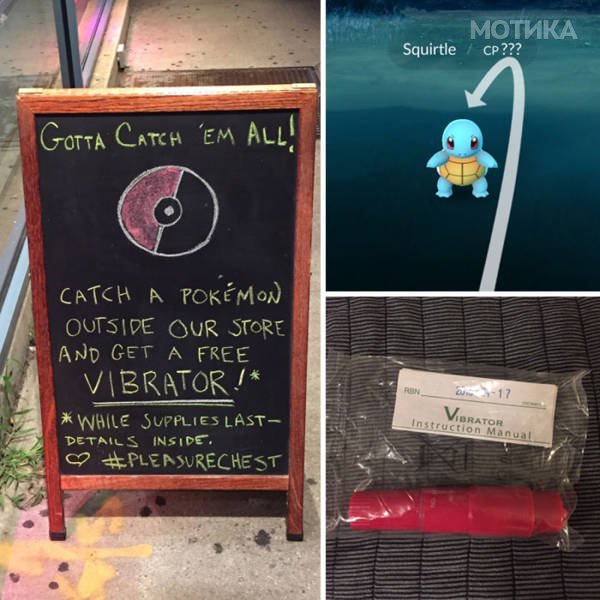 GOTTA CATCH 'EM ALL!
CATCH A POKÉMON
OUTSIDE OUR STORE
AND GET A FREE
VIBRATOR!*
*WHILE SUPPLIES LAST-
DETAILS INSIDE.
♡ #PLEASURECHEST
МОТИКА
Squirtle / CP ???
RBN
VIBRATOR
Instruction Manual